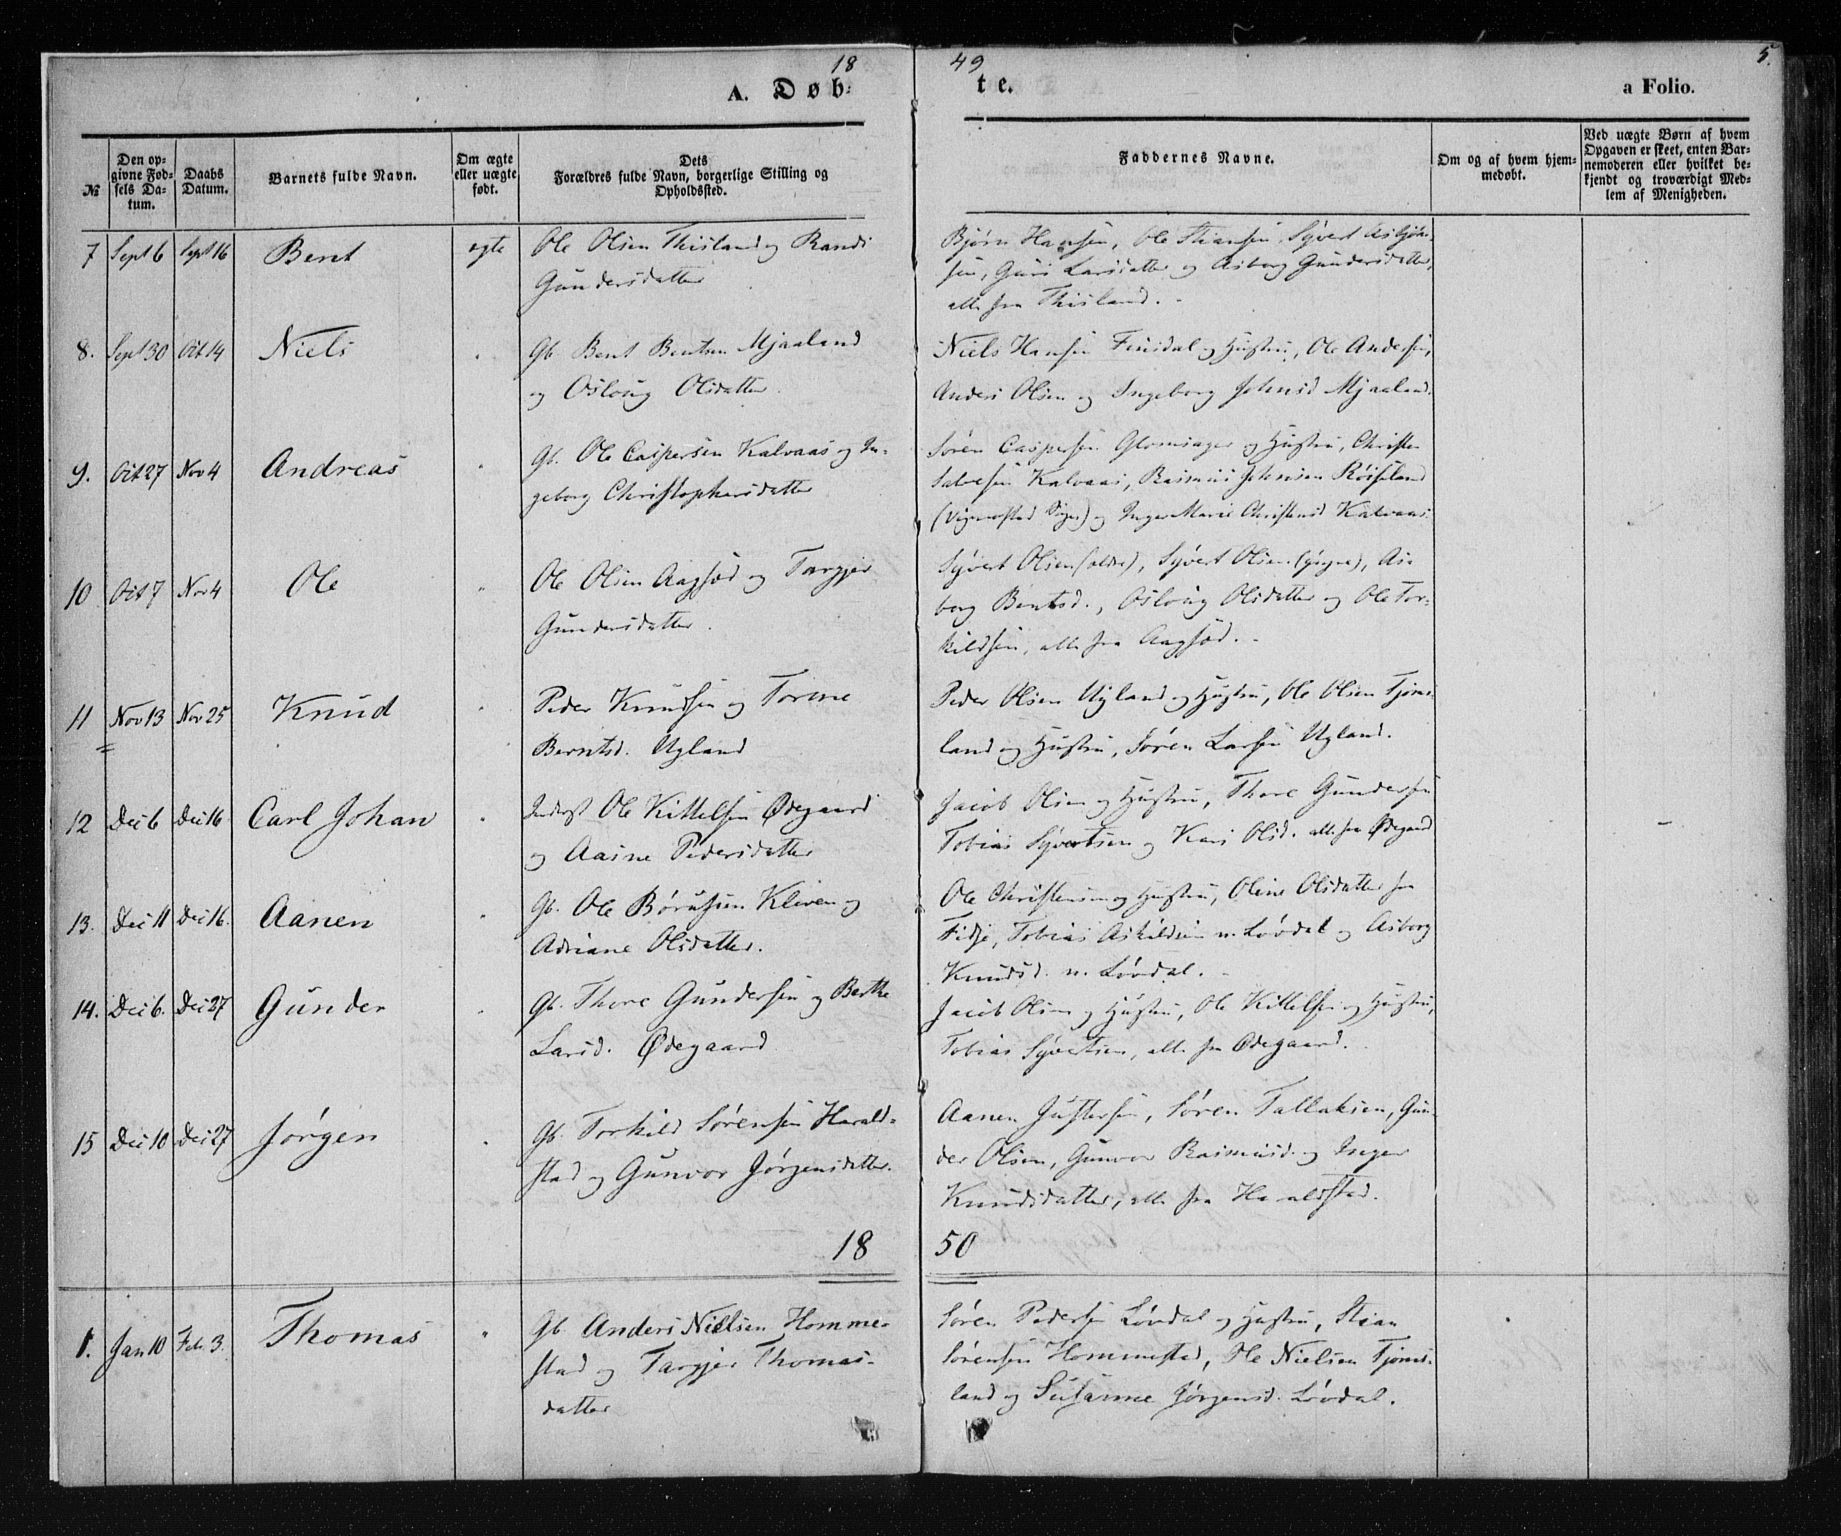 18 49 5.
A. Døb- te. a Folio.
№ Den op-
givne Fød-
sels Da-
tum. Daabs
Datum. Barnets fulde Navn. Om ægte
eller uægte
født. Dets
Forældres fulde Navn, borgerlige Stilling og
Opholdssted. Faddernes Navne. Om og af hvem hjem-
medøbt. Ved uægte Børn af hvem
Opgaven er skeet, enten Bar-
nemoderen eller hvilket be-
kjendt og troværdigt Med-
lem af Menigheden.
7 Sept 6 Sept 16 Bent ægte Ole Olsen Thisland og Randi
Gundersdatter
Bjørn Hansen, Ole Sivert Asbjørn-
sen, Guri Larsdatter og Asborg Gundersdatter,
alle fra Thisland.
8. Sept 30 Oct 14 Niels " Gb. Bent Bentsen Mjaaland
og Osloug Olsdatter.
Niels Hansen Finsdal og Hustru, Ole Andersen,
Anders Olsen og Ingeborg Johnsd Mjaaland.
9. Oct 27 Nov 4 Andreas " Gb. Ole Caspersen Kalvaas og In-
geborg Christophersdatter
Søren Caspersen og Hustru, Christen
Salvesen Kalvaas, Rasmus Johnsen Røiseland
(Vigmostad Sogn) og Inger Marie Christensd Kalvaas.
10 Oct 7 Nov 4 Ole " Ole Olsen Aagsød og Targjer
Gundersdatter.
Syvert Olsen (ældre), Syvert Olsen (yngre), As-
borg Bentsd., Osloug Olsdatter og Ole Tor-
kildsen, alle fra Aagsød.
11 Nov 13 Nov 25 Knud " Peder Knudsen og Torine
Berntsd. Ugland
Peder Olsen Ugland og Hustru, Ole Olsen Tjoms-
land og Hustru, Søren Larsen Ugland.
12 Dec 6 Dec 16 Carl Johan " Inderst Ole Kittelsen Ødegaard
og Aasne Pedersdatter
Jacob Olsen og Hustru, Thore Gundersen
Tobias Syvertsen og Kari Olsd. alle fra Ødegaard
13. Dec 11 Dec 16. Aanen " Gb. Ole Børusen Kleven og
Adriane Olsdatter.
Ole Christensen og Hustru, Oline Olsdatter fra
Fidje, Tobias Askildsen n. Løvdal og Asborg
Knudsd. n. Løvdal.
14. Dec 6. Dec 27 Gunder " Gb. Thore Gundersen og Berthe
Larsd. Ødegaard
Jacob Olsen og Hustru, Ole Kittelsen og Hustru,
Tobias Syvertsen, alle fra Ødegaard.
15 Dec 10 Dec 27 Jørgen " Gb. Torkild Sørensen Harald-
stad og Gunvor Jørgensdatter.
Aanen Gustersen, Søren Tallaksen, Gun-
der Olsen, Gunvor Rasmusd. og Inger
Knudsdatter, alle fra Haraldstad.
18 50
1. Jan 10 Feb. 3. Thomas " Gb. Anders Nielsen Homme-
stad og Targjer Thomas-
datter
Søren Pedersen Løvdal og Hustru, Stian
Sørensen Hommestad, Ole Nielsen Tjoms-
land og Susanne Jørgensd. Løvdal.